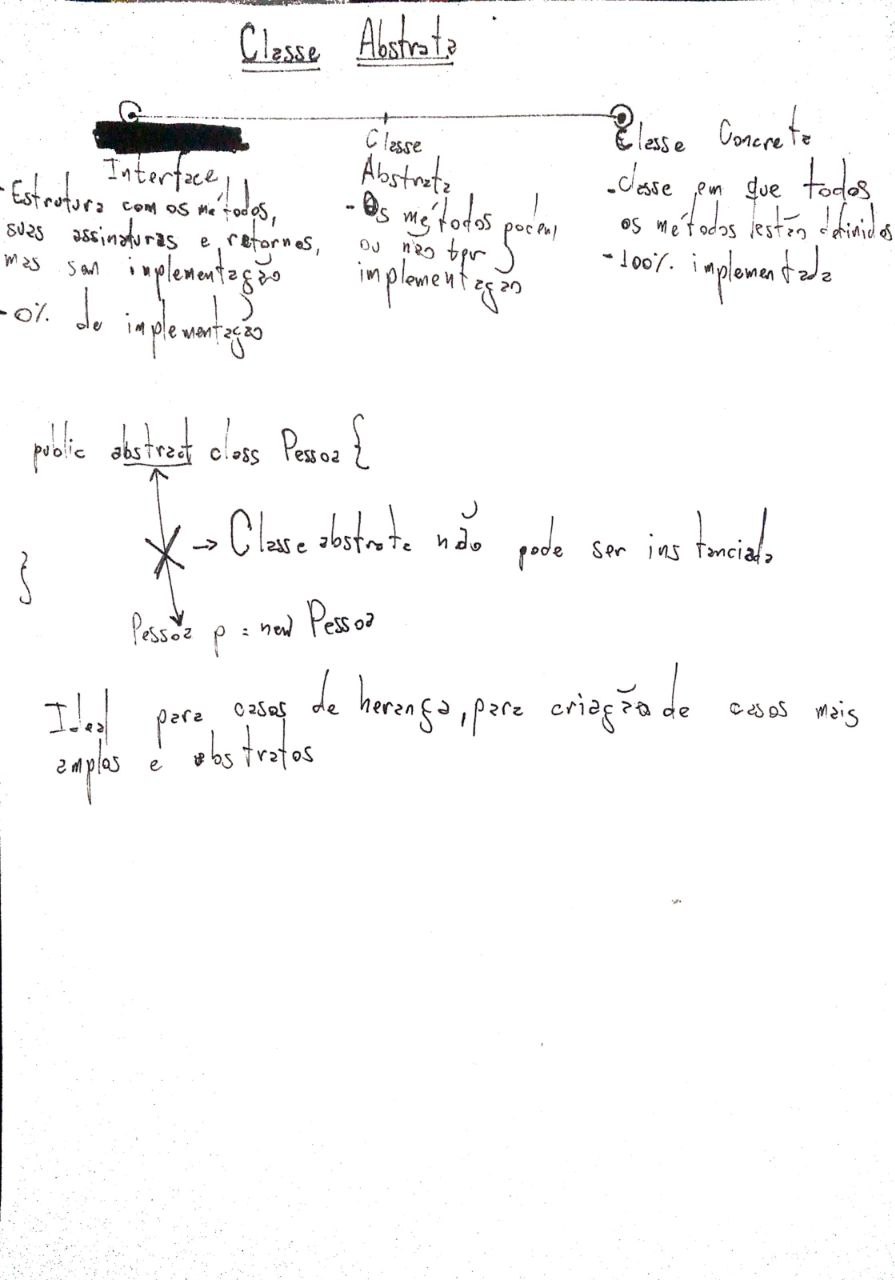 Classe Abstrata
Interface
- Estrutura com os métodos,
suas assinaturas e retornos,
mas sem implementação
- 0% de implementação
Classe
Abstrata
- Os métodos podem
ou não ter
implementação
Classe Concreta
- Classe em que todos
os métodos estão definidos
- 100% implementada
public abstract class Pessoa {
→ Classe abstrata não pode ser instanciada
}
Pessoa p = new Pessoa
Ideal para casos de herança, para criação de casos mais
amplos e abstratos